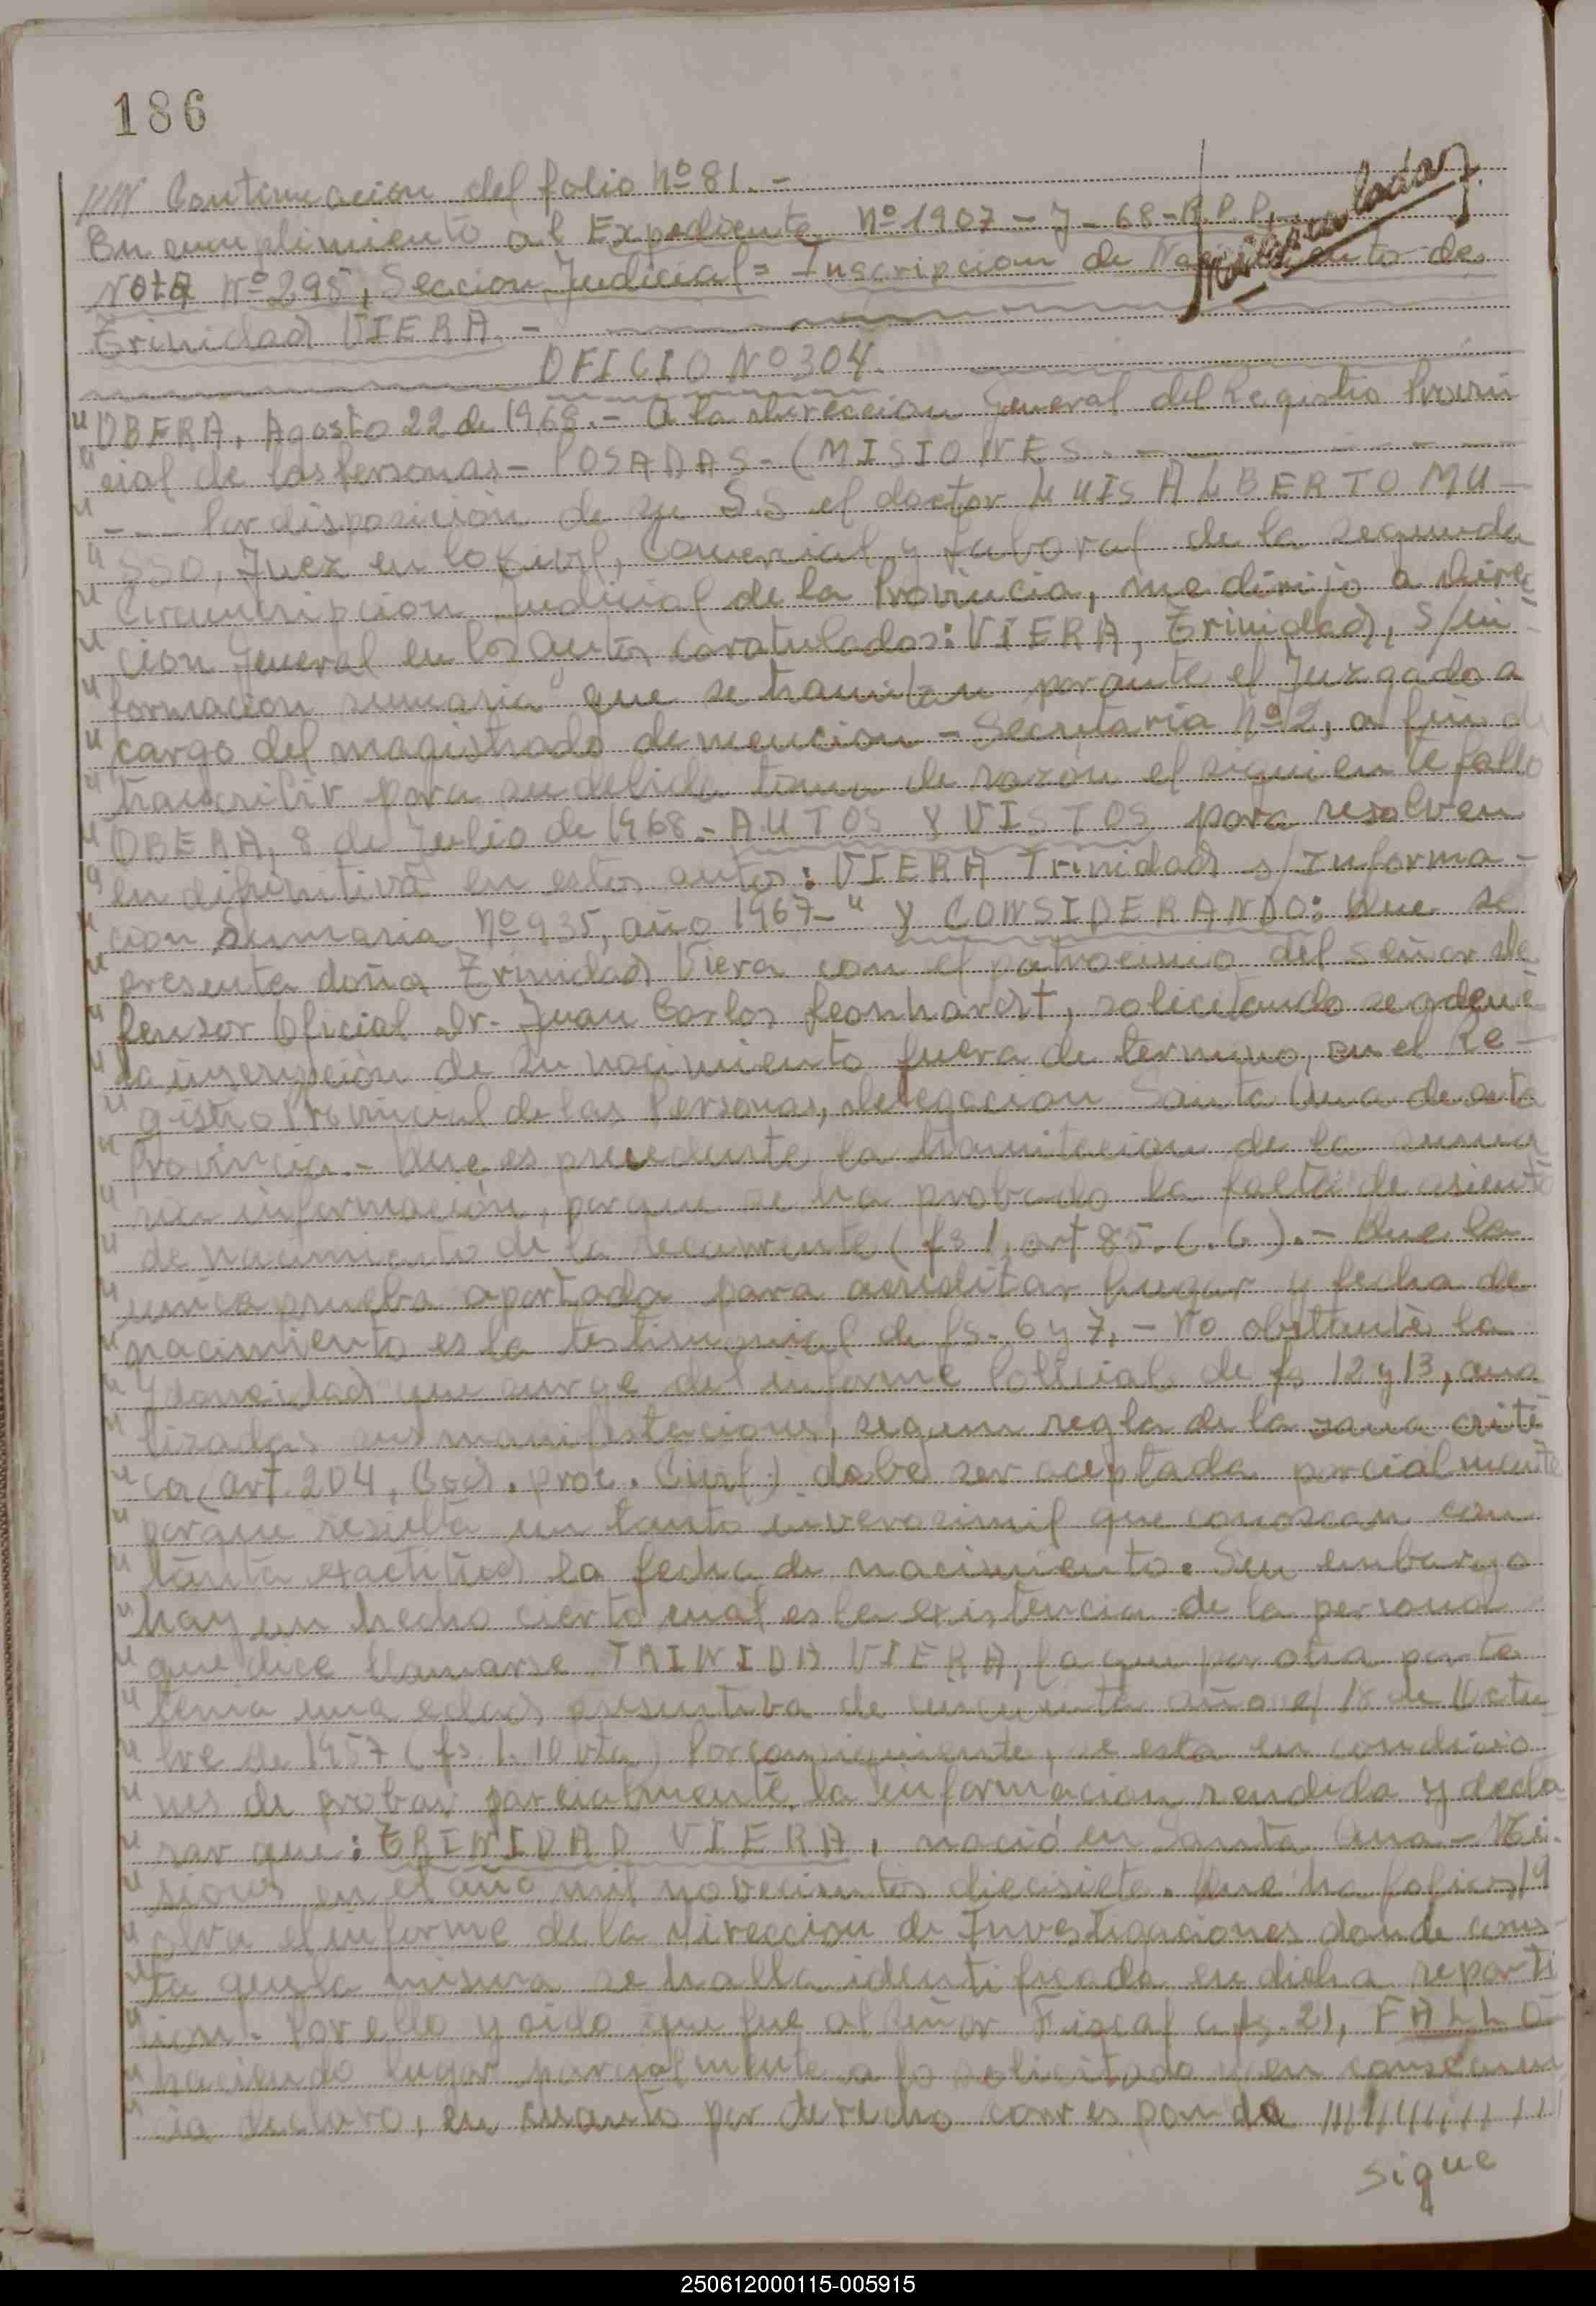 186
//// Continuacion del folio Nº 81.-
En cumplimiento al Expediente Nº 1907-J-68-R.P.P.-
Nota Nº 295, Seccion Judicial= Inscripcion de Nacimiento de
Trinidad VIERA.-
OFICIO Nº 304.
" OBERA, Agosto 22 de 1968.- A la direccion General del Registro Provin
" cial de las Personas- POSADAS-(MISIONES.-
" ---- Por disposición de su S.S el doctor LUIS ALBERTO MU-
" SSO, Juez en lo Civil, Comercial y Laboral de la segunda
" Circunscripcion Judicial de la Provincia, me dirijo a direc
" cion General en los autos caratulados: VIERA, Trinidad, s/in-
" formacion sumaria que se tramitan por ante el Juzgado a
" cargo del magistrado de mencion - Secretaria Nº 2, a fin de
" transcribir para su debida toma de razón el siguiente fallo
" OBERA, 8 de Julio de 1968.- AUTOS Y VISTOS para resolver
" en difinitiva en estos autos: VIERA Trinidad s/Informa-
" cion Sumaria Nº 935, año 1967-" Y CONSIDERANDO: Que se
" presenta doña Trinidad Viera con el patrocinio del señor de
" fensor Oficial Dr. Juan Carlos Leonhardt, solicitando se ordene
" la inscripción de su nacimiento fuera de termino, en el Re-
" gistro Provincial de las Personas, delegacion Santa Ana de esta
" Provincia.- Que es procedente la tramitacion de la suma
" ria información, porque se ha probado la falta de asiento
" de nacimiento de la recurrente (fs 1, art 85. C.C.).- Que la
" unica prueba aportada para acreditar lugar y fecha de
" nacimiento es la testimonial de fs. 6 y 7.- No obstante la
" ydoneidad que surge del informe Policial de fs 12 y 13, ana
" lizadas sus manifestaciones, segun regla de la sana criti
" ca (art. 204, Cod. proc. Civil) debe ser aceptada parcialmente
" porque resulta un tanto inverosimil que conozcan con
" tanta exactitud la fecha de nacimiento. Sin embargo
" hay un hecho cierto cual es la existencia de la persona
" que dice llamarse TRINIDA VIERA, la que por otra parte
" tenia una edad presuntiva de cincuenta año el 18 de Octu
" bre de 1957 (fs 1. 10 vta) Por consiguiente, se esta en condicio
" nes de probar parcialmente la informacion rendida y decla
" rar que: TRINIDAD VIERA, nació en Santa Ana - Mi-
" siones en el año mil novecientos diecisiete. Que ha folios 19
" obra el informe de la direccion de Investigaciones donde cons-
" ta que la misma se halla identificada en dicha reparti
" cion. Por ello y oido que fue al Señor Fiscal a fs. 21, FALLO
" haciendo lugar parcialmente a lo solicitado y en consecuen
" cia declaro, en cuanto por derecho corresponda ////////////
sigue
250612000115-005915